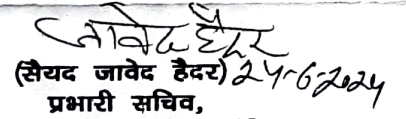 जावेद हैदर
(सैयद जावेद हैदर) 24-6-2024
प्रभारी सचिव,